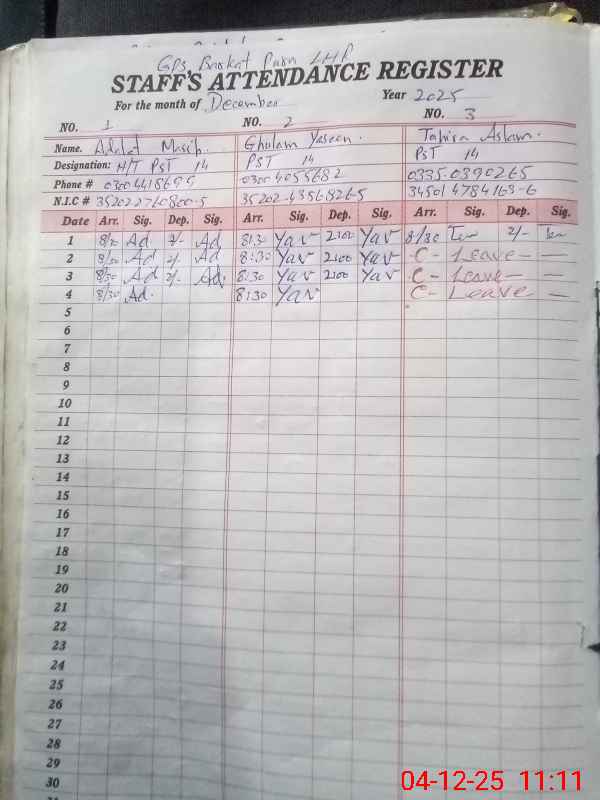 GPS Barkat Pura LHR
STAFF'S ATTENDANCE REGISTER
For the month of December Year 2025
NO. 1 NO. 2 NO. 3
Name. Adalat Masih. Ghulam Yaseen. Tahira Aslam.
Designation: H/T PST 14 PST 14 PST 14
Phone # 0300 4055682 0335-0390265
N.I.C # 35202-4356826-5 34501 4784163-6
Date Arr. Sig. Dep. Sig. Arr. Sig. Dep. Sig. Arr. Sig. Dep. Sig.
1 8/30 Ad 2/- Ad 8:30 Yas 2:00 Yas 8/30 2/-
2 8/30 Ad 2/- Ad 8:30 Yas 2:00 Yas C- Leave -
3 8/30 Ad 2/- Ad. 8:30 Yas 2:00 Yas C- Leave -
4 8/30 Ad. 8:30 Yas C- Leave -
5
6
7
8
9
10
11
12
13
14
15
16
17
18
19
20
21
22
23
24
25
26
27
28
29
30
04-12-25 11:11